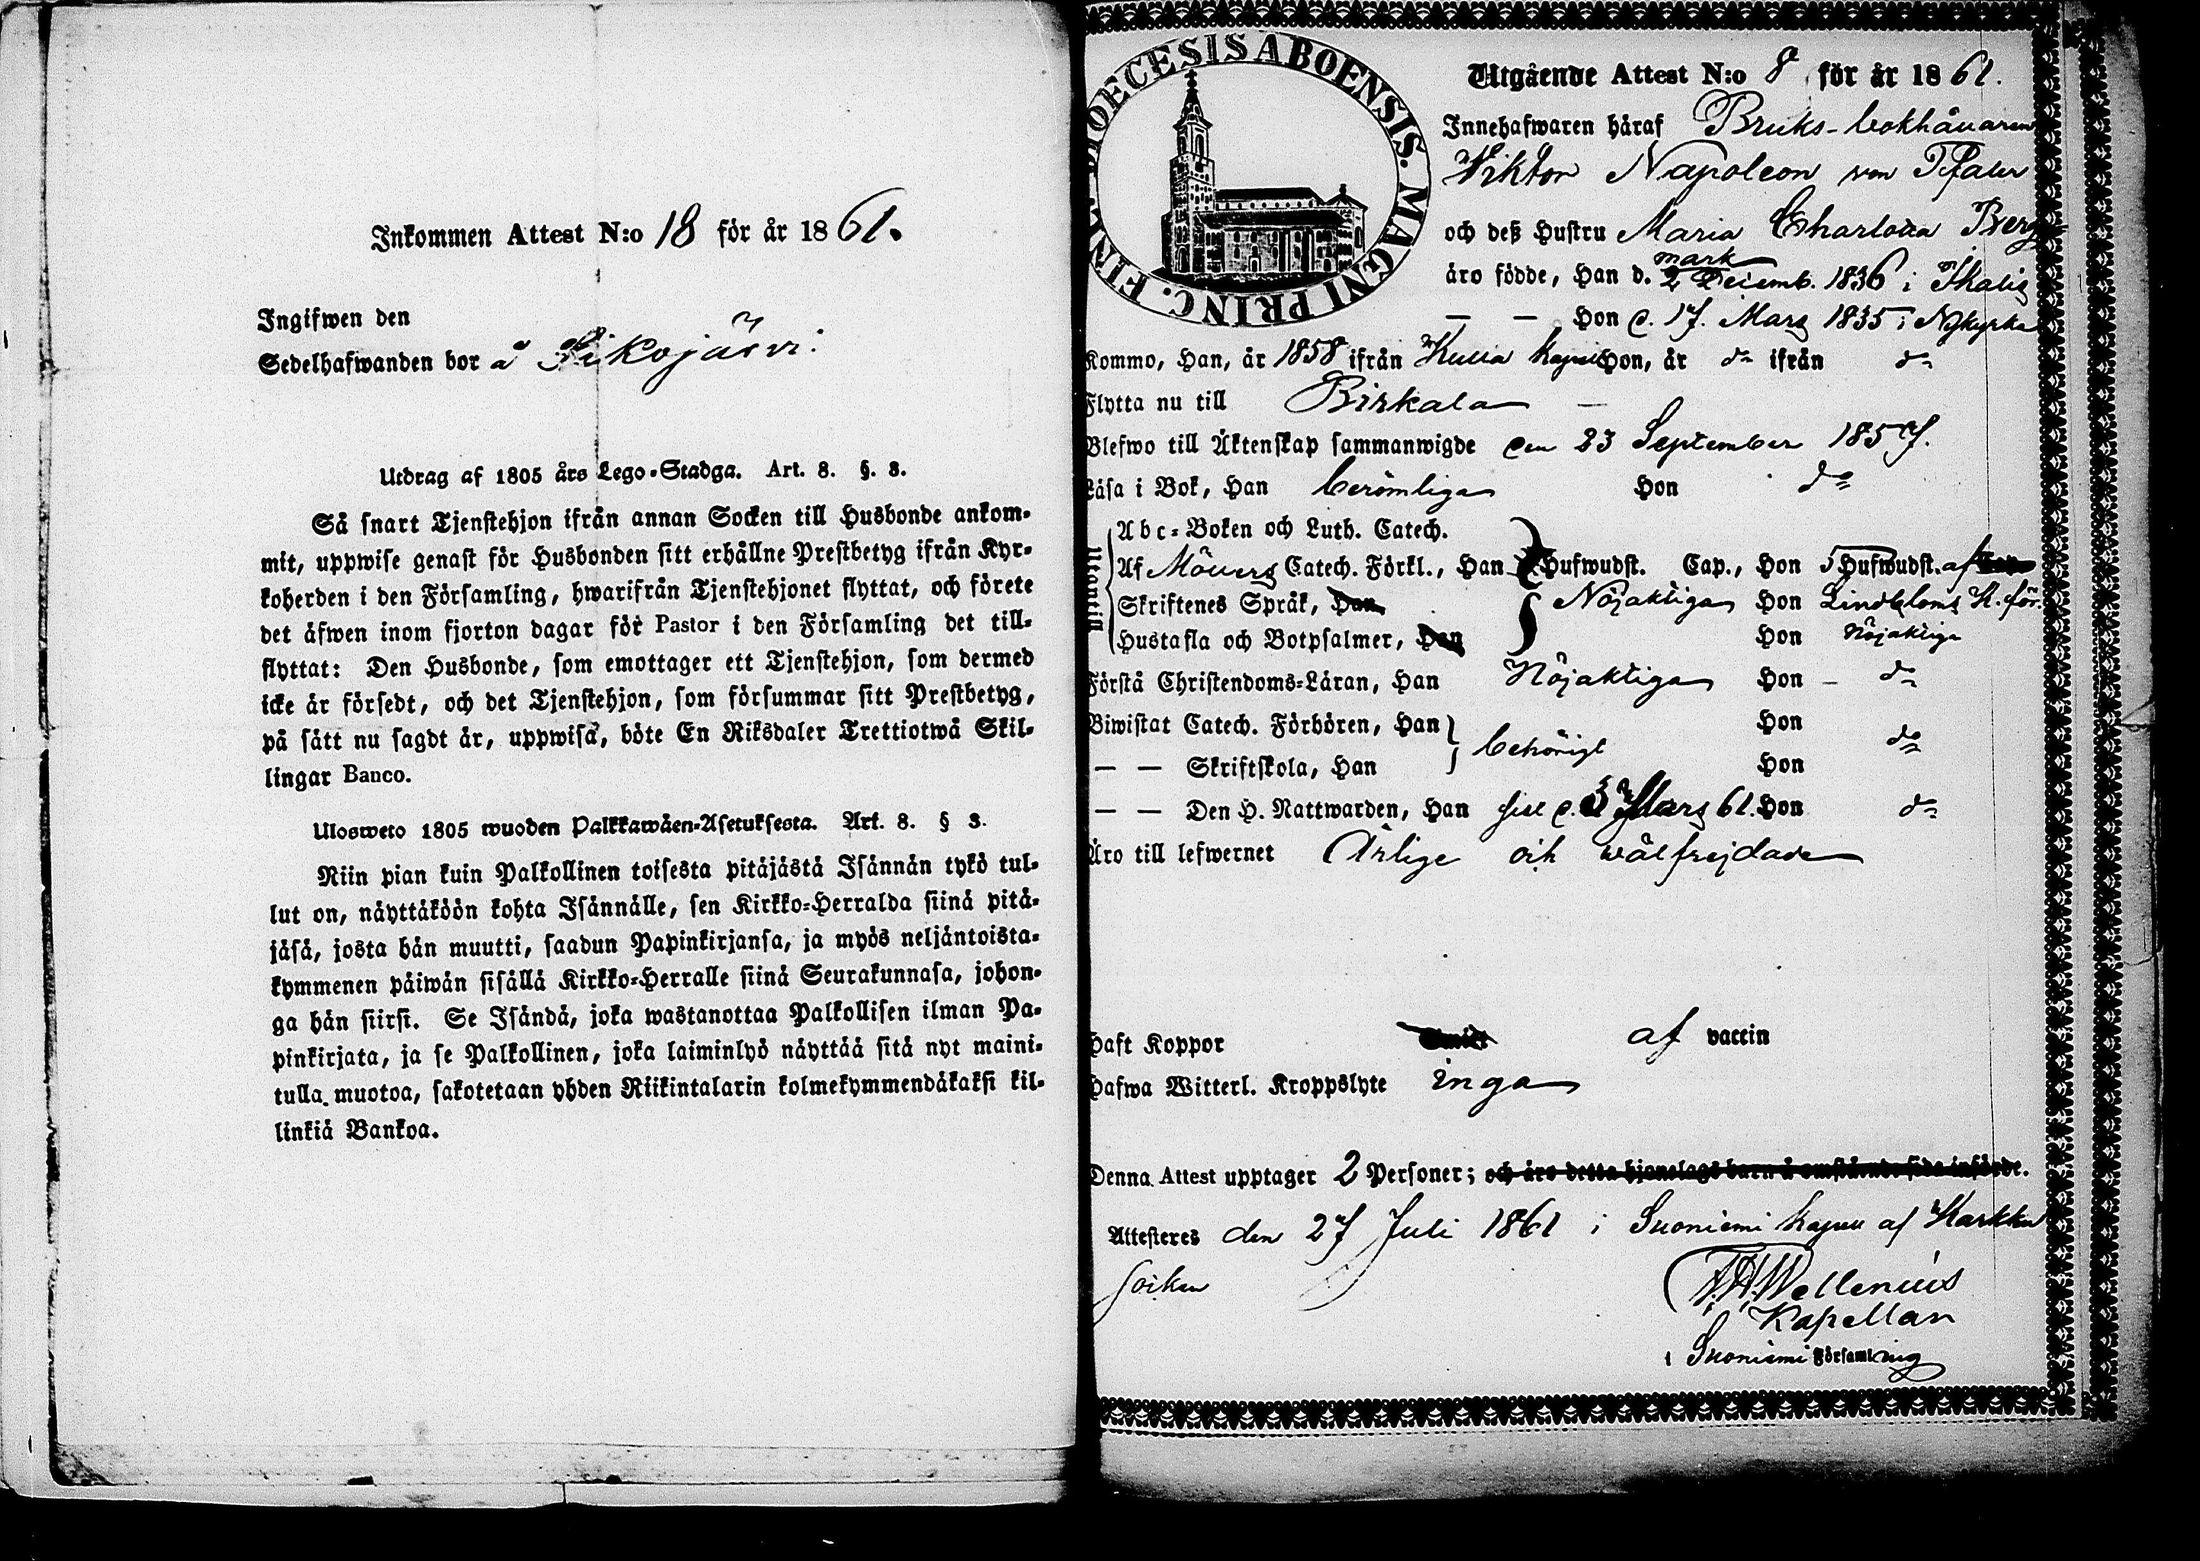 Inkommen Attest N:o 18 för år 1861.
Ingifwen den
Sedelhafwanden bor å Siikojärvi.
Utdrag af 1805 års Lego-Stadga. Art. 8. §. 3.
Så snart Tjenstehjon ifrån annan Socken till Husbonde ankom-
mit, uppwise genast för Husbonden sitt erhållne Prestbetyg ifrån Kyr-
koherden i den Församling, hwarifrån Tjenstehjonet flyttat, och förete
det äfwen inom fjorton dagar för Pastor i den Församling det till-
flyttat: Den Husbonde, som emottager ett Tjenstehjon, som dermed
icke är försedt, och det Tjenstehjon, som försummar sitt Prestbetyg,
på sätt nu sagdt är, uppwisa, böte En Riksdaler Trettiotwå Skil-
lingar Banco.
Ulosweto 1805 wuoden Palkkawäen-Asetuksesta. Art. 8. § 3.
Niin pian kuin Palkollinen toisesta pitäjästä Isännän tykö tul-
lut on, näyttäköön kohta Isännälle, sen Kirkko-Herralda siinä pitä-
jäsä, josta hän muutti, saadun Papinkirjansa, ja myös neljäntoista-
kymmenen päiwän sisällä Kirkko-Herralle siinä Seurakunnasa, johon-
ga hän siirsi. Se Isändä, joka wastanottaa Palkollisen ilman Pa-
pinkirjata, ja se Palkollinen, joka laiminlyö näyttää sitä nyt maini-
tulla muotoa, sakotetaan yhden Riikintalarin kolmekymmendäkaksi kil-
linkiä Bankoa.
DIOECESIS ABOENSIS. MAGNI PRINC. FINL.
Utgående Attest N:o 8 för år 1861.
Innehafwaren häraf Bruks-bokhållaren
Viktor Napoleon von Pfaler
och deß Hustru Maria Charlotta Berg
mark
äro födde, Han d. 2 Decemb. 1836 i Ikalis
— — Hon d. 17. Mars 1835 i Nykyrka
Kommo, Han, år 1858 ifrån Kulla Kapell Hon, år do ifrån do
Flytta nu till Birkala —
Blefwo till Äktenskap sammanwigde den 23 September 1857.
Läsa i Bok, Han berömliga Hon do
Utantill
Abc-Boken och Luth. Catech.
Af Möllers Catech. Förkl., Han Hufwudst. Cap., Hon 5 Hufwudst. af Cap
Skriftenes Språk, Han Nöjaktiga Hon Lindbloms K. för.
Hustafla och Botpsalmer, Han Hon Nöjaktiga
Förstå Christendoms-Läran, Han Nöjaktiga Hon — do
Biwistat Catech. Förhören, Han behörigt Hon do
— — Skriftskola, Han Hon
— — Den H. Nattwarden, Han sist d. 3 Mars 61. Hon do
Äro till lefwernet Ärlige och wälfrejdade
Haft Koppor af vaccin
Hafwa Witterl. Kroppslyte inga
Denna Attest upptager 2 Personer; och äro detta hjonelags barn å omstående sida införde.
Attesteres den 27 Juli 1861 i Suoniemi Kapell af Karkku
Socken
Wellenius
Kapellan
i Suoniemi Församling